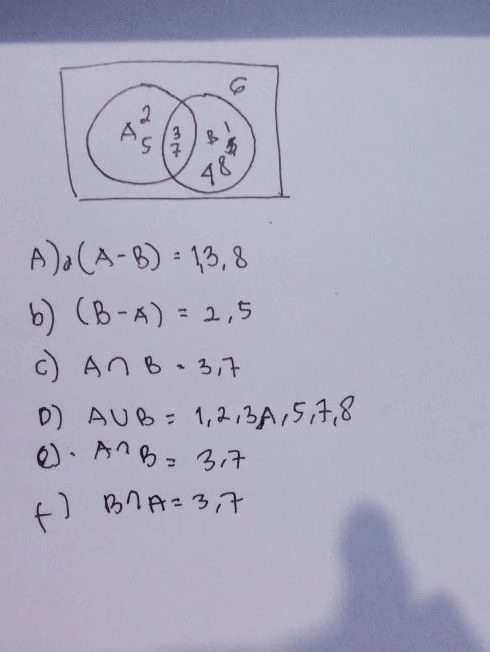 6
A 2
5
3
7
B 1
4 8
A) (A-B) = 1,3,8
b) (B-A) = 2,5
c) A∩B = 3,7
D) A∪B = 1,2,3A,5,7,8
e). A∩B = 3,7
f) B∩A = 3,7